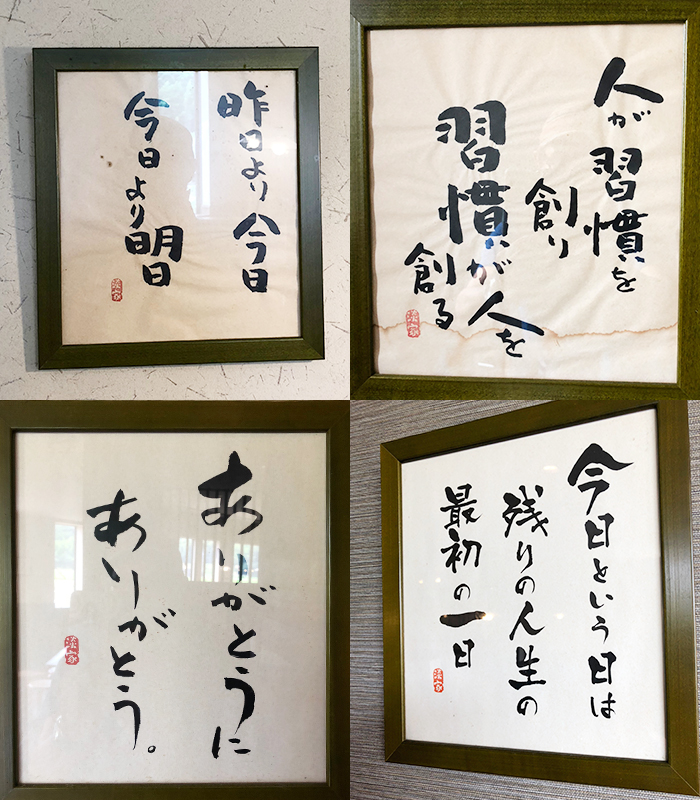 昨日より今日
今日より明日
人が習慣を
創り
習慣が人を
創る
ありがとうに
ありがとう。
今日という日は
残りの人生の
最初の一日